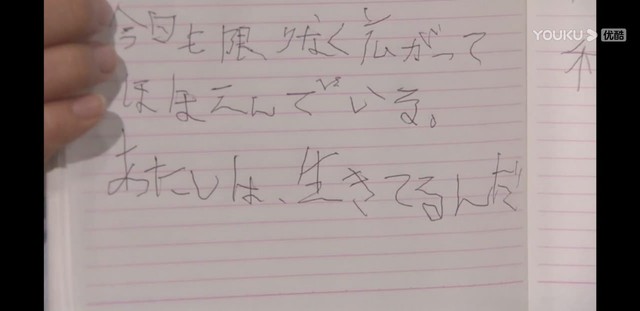 YOUKU 优酷
今日も限りなく広がって
ほほえんでいる。
あたしは、生きてるんだ